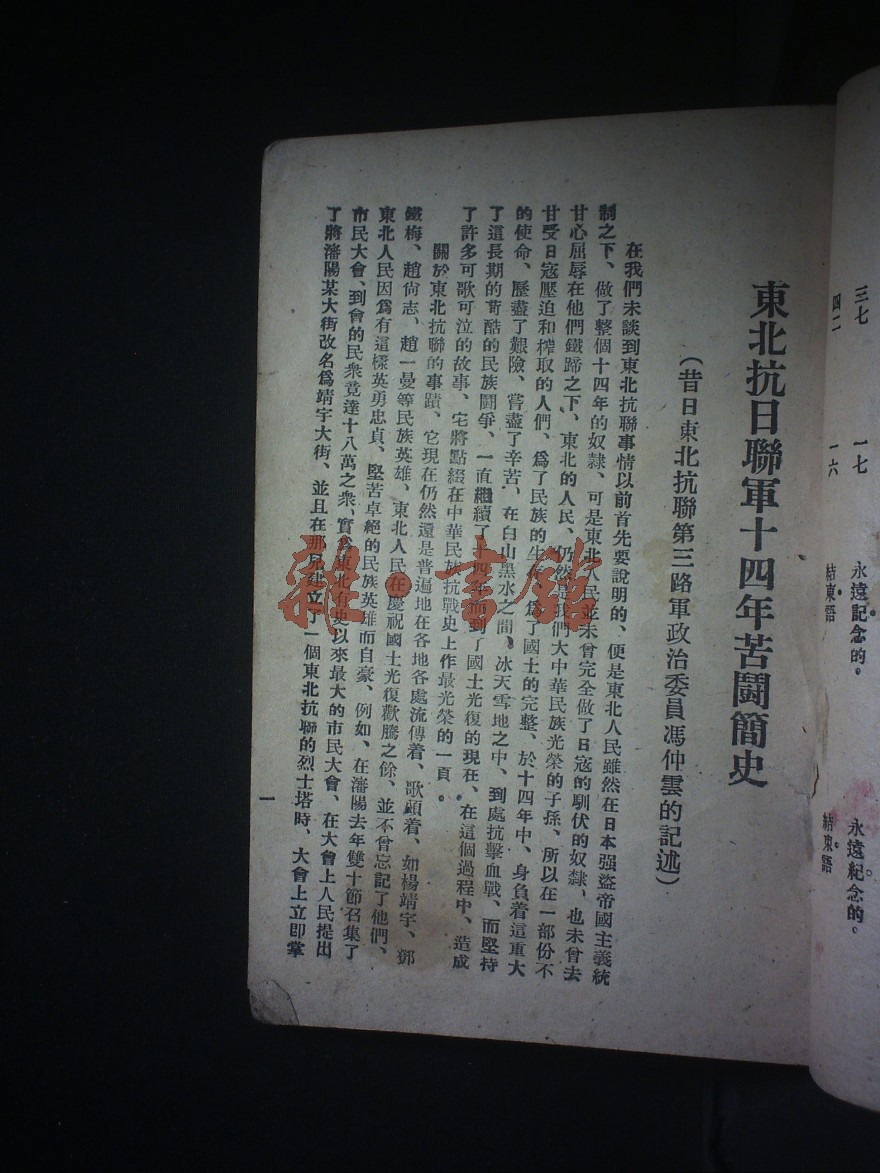 三七 一七 永遠記念的。
四二 一六 結束語 永遠紀念的。
結束語
東北抗日聯軍十四年苦鬪簡史
(昔日東北抗聯第三路軍政治委員馮仲雲的記述)
在我們未談到東北抗聯事情以前首先要說明的、便是東北人民雖然在日本强盜帝國主義統
制之下、做了整個十四年的奴隸、可是東北人民並未曾完全做了日寇的馴伏的奴隸、也未曾去
甘心屈辱在他們鐵蹄之下、東北的人民、仍然是我們大中華民族光榮的子孫、所以在一部份不
甘受日寇壓迫和榨取的人們、爲了民族的生存、爲了國土的完整、於十四年中、身負着這重大
的使命、歷盡了艱險、嘗盡了辛苦、在白山黑水之間、冰天雪地之中、到處抗擊血戰、而堅持
了這長期的苛酷的民族鬪爭、一直繼續了十四年而到了國土光復的現在、在這個過程中、造成
了許多可歌可泣的故事、它將點綴在中華民族抗戰史上作最光榮的一頁。
關於東北抗聯的事蹟、它現在仍然還是普遍地在各地各處流傳着、歌頌着、如楊靖宇、鄧
鐵梅、趙尙志、趙一曼等民族英雄、東北人民在慶祝國土光復歡騰之餘、並不曾忘記了他們、
東北人民因爲有這樣英勇忠貞、堅苦卓絕的民族英雄而自豪、例如、在瀋陽去年雙十節召集了
市民大會、到會的民衆竟達十八萬之衆、實爲東北有史以來最大的市民大會、在大會上人民提出
了將瀋陽某大街改名爲靖宇大街、並且在那兒建立了一個東北抗聯的烈士塔時、大會上立卽掌
一
雜·書館